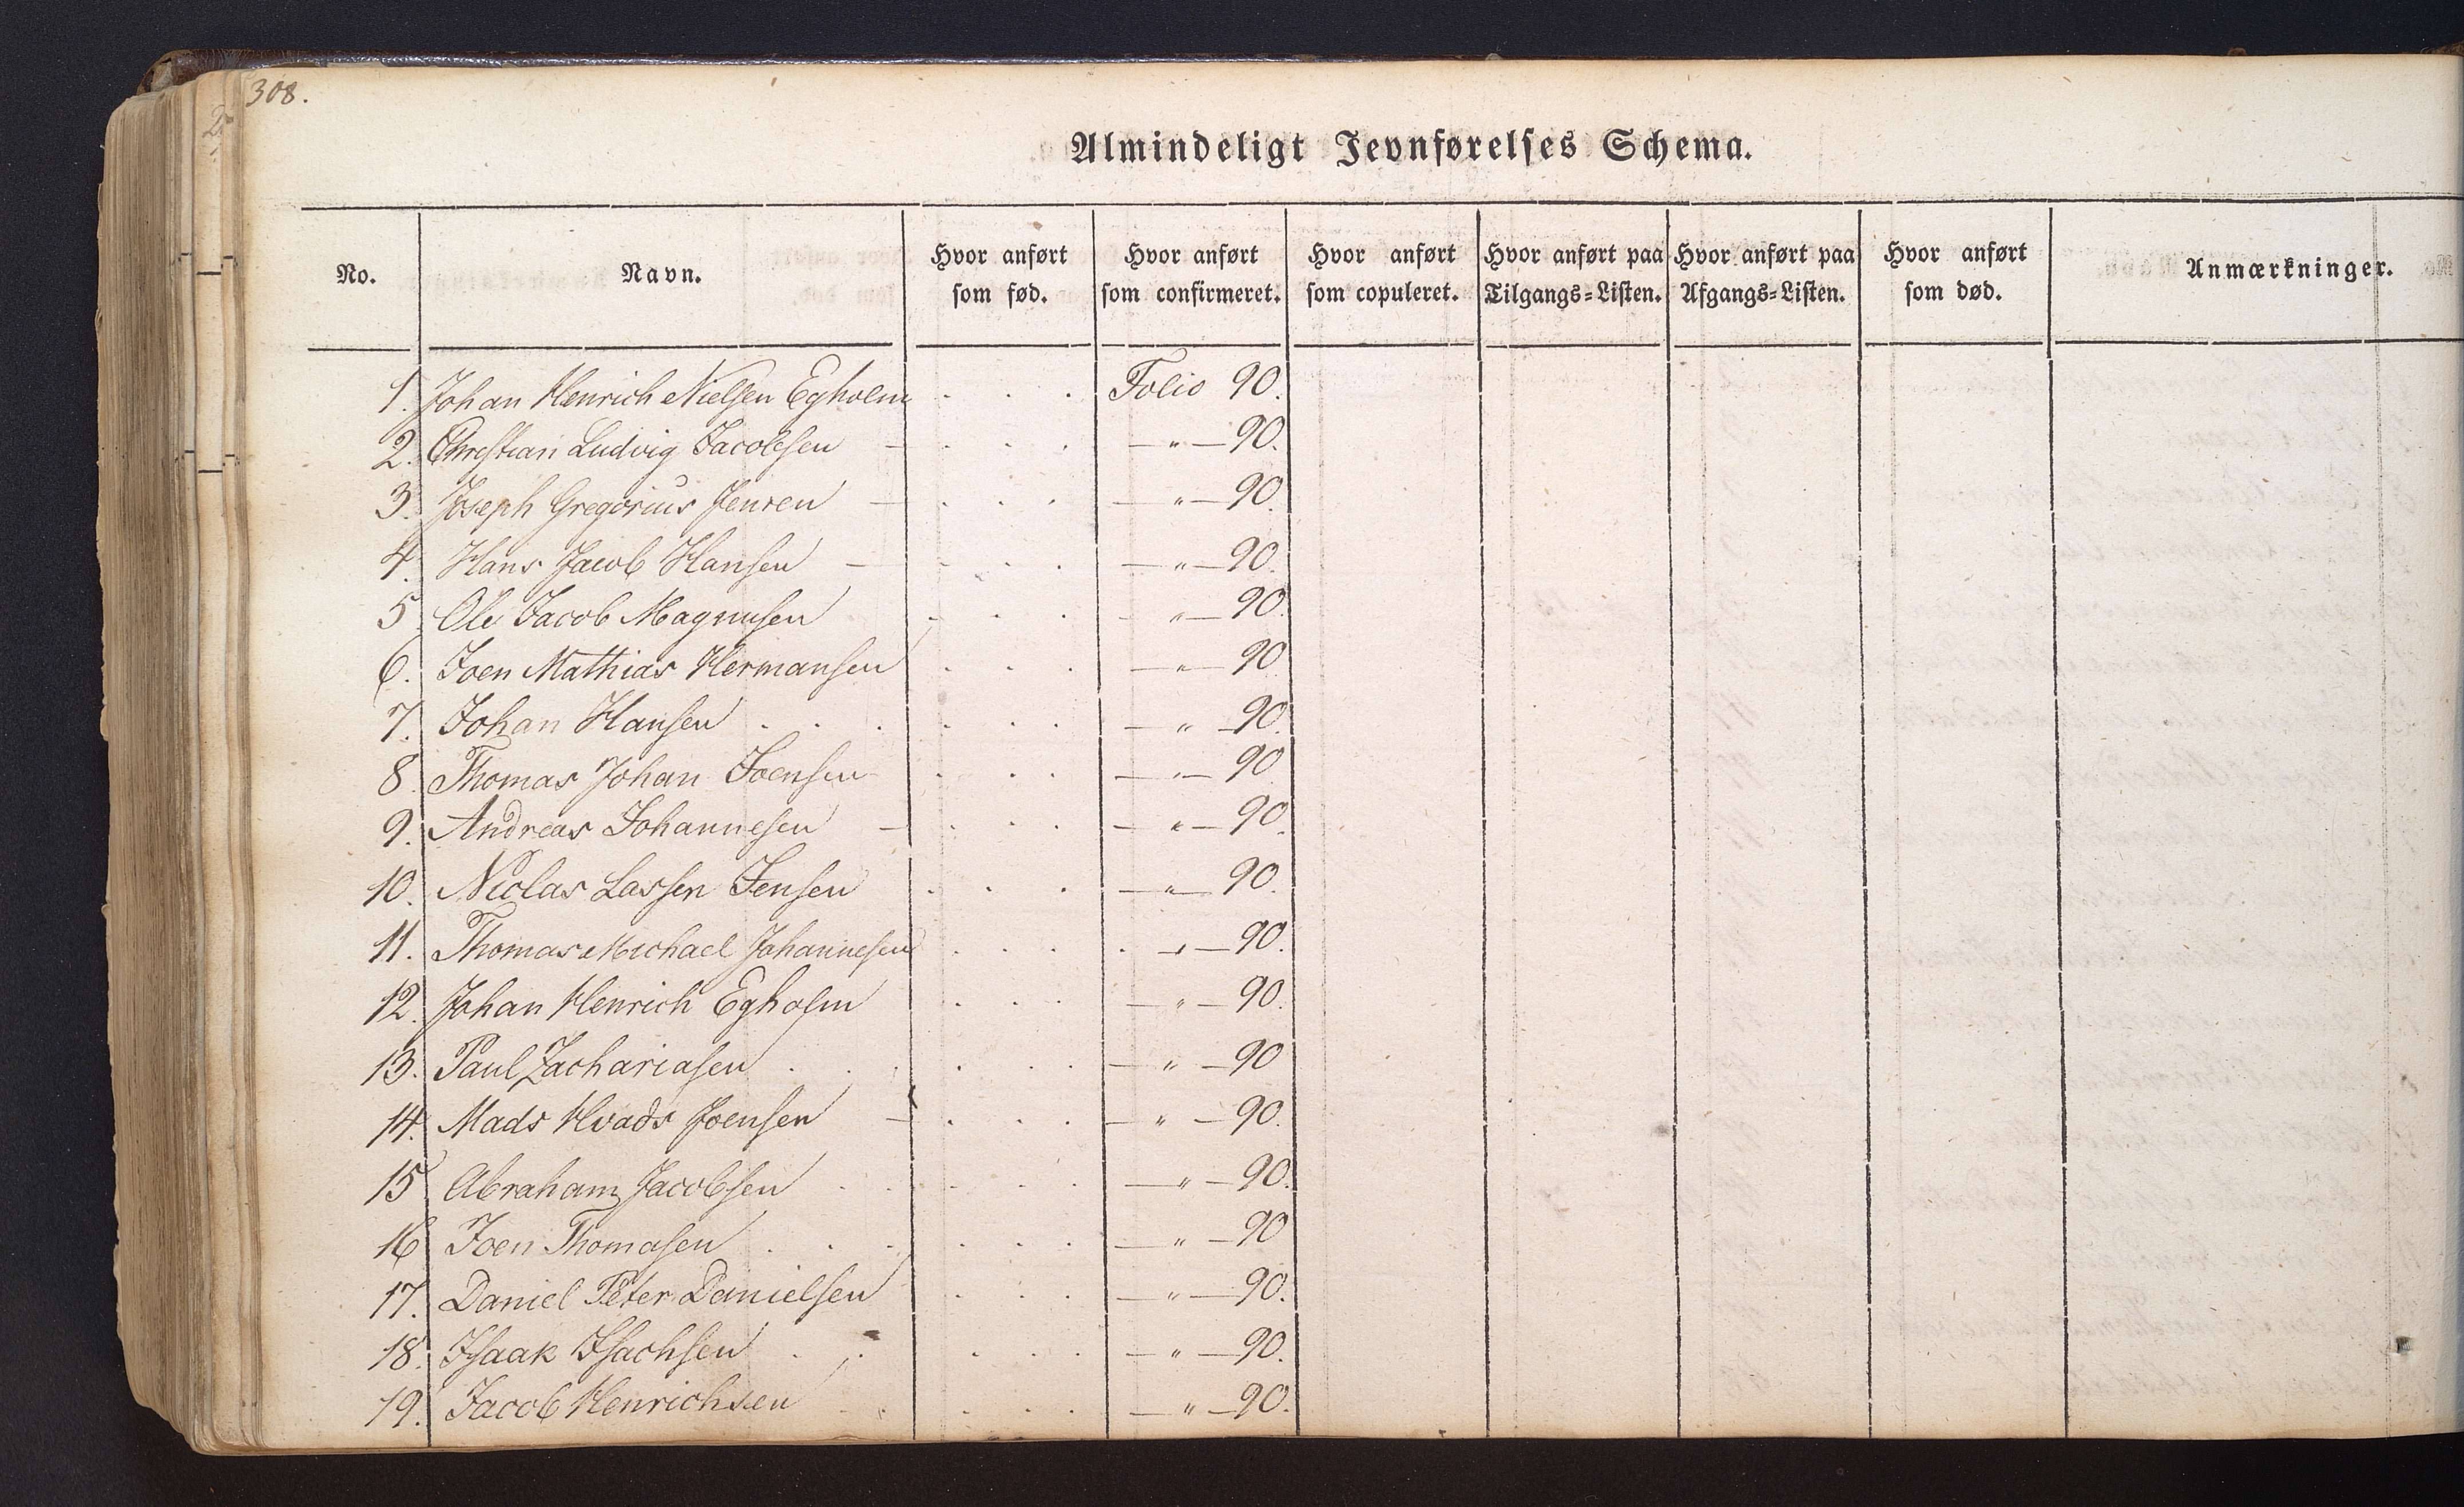 308.
Almindeligt Jevnførelses Schema.
No. Navn. Hvor anført som fød. Hvor anført som confirmeret. Hvor anført som copuleret. Hvor anført paa Tilgangs=Listen. Hvor anført paa Afgangs=Listen. Hvor anført som død. Anmærkninger.
1. Johan Henrich Nielsen Egholm . . . Folio 90.
2. Christian Ludvig Jacobsen — . . . — " — 90.
3. Joseph Gregorius Jensen — . . . — " — 90.
4. Hans Jacob Hansen — . . . — " — 90.
5 Ole Jacob Magnusen . . . — " — 90.
6. Joen Mathias Hermansen . . . — " — 90
7. Johan Hansen . . . . . . — " — 90.
8. Thomas Johan Joensen . . . — " — 90
9. Andreas Johannesen — . . . — " — 90.
10. Nicolas Lassen Jensen . . . — " — 90.
11. Thomas Michael Johannesen . . . . — " — 90.
12. Johan Henrich Egholm . . . — " — 90.
13. Paul Zachariasen . . . . . . — " — 90
14. Mads Hvads Joensen — . . . — " — 90.
15 Abraham Jacobsen . . . . . — " — 90.
16 Joen Thomasen . . . . . . — " — 90
17. Daniel Peter Danielsen . . . — " — 90.
18. Isaak Isachsen . . . . . — " — 90.
19. Jacob Henrichsen . . . . . — " — 90.